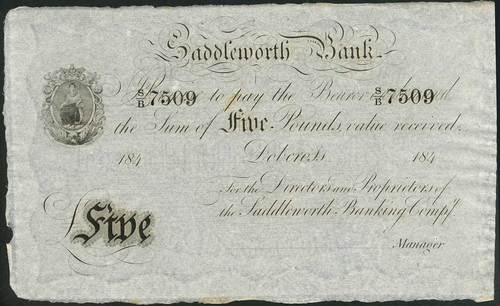 Saddleworth Bank
S/B 7509 to pay the Bearer S/B 7509
the Sum of Five Pounds, value received,
184 Dobcross 184
For the Directors and Proprietors of
the Saddleworth Banking Compy.
Five
Manager